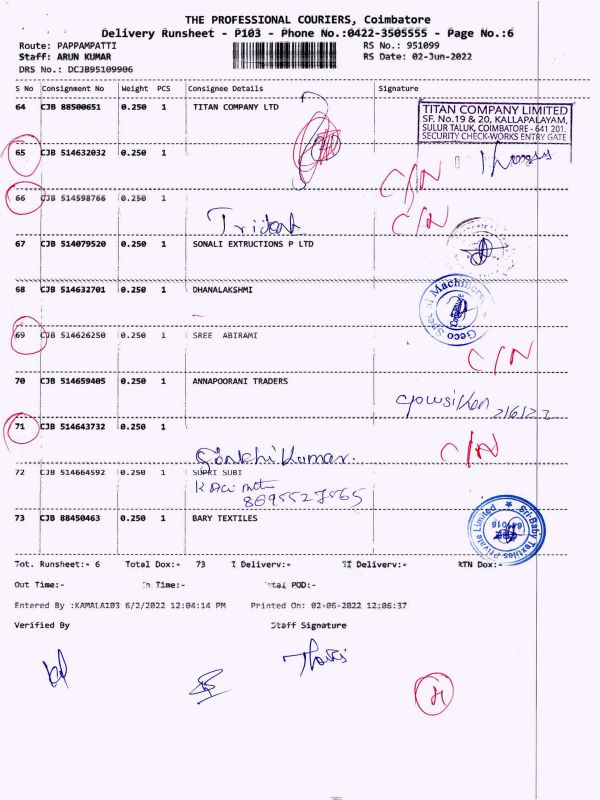 THE PROFESSIONAL COURIERS, Coimbatore
Delivery Runsheet - P103 - Phone No.:0422-3505555 - Page No.:6
Route: PAPPAMPATTI RS No.: 951099
Staff: ARUN KUMAR RS Date: 02-Jun-2022
DRS No.: DCJB95109906
S No Consignment No Weight PCS Consignee Details Signature
64 CJB 88500651 0.250 1 TITAN COMPANY LTD
TITAN COMPANY LIMITED
SF. No.19 & 20, KALLAPALAYAM,
SULUR TALUK, COIMBATORE - 641 201.
SECURITY CHECK-WORKS ENTRY GATE
65 CJB 514632032 0.250 1
C/N
66 CJB 514598766 0.250 1
C/N
Trident
67 CJB 514079520 0.250 1 SONALI EXTRUCTIONS P LTD
68 CJB 514632701 0.250 1 DHANALAKSHMI
Geco Special Machiners
69 CJB 514626250 0.250 1 SREE ABIRAMI
C/N
70 CJB 514659405 0.250 1 ANNAPOORANI TRADERS
2/6/22
71 CJB 514643732 0.250 1
C/N
72 CJB 514664592 0.250 1 SUPRI SUBI
8695527565
73 CJB 88450463 0.250 1 BARY TEXTILES
Sri-Baby Textiles Private Limited
Tot. Runsheet:- 6 Total Dox:- 73 Delivery:- Delivery:- RTN Dox:-
Out Time:- In Time:- Total POD:-
Entered By :KAMALA103 6/2/2022 12:04:14 PM Printed On: 02-06-2022 12:06:37
Verified By Staff Signature